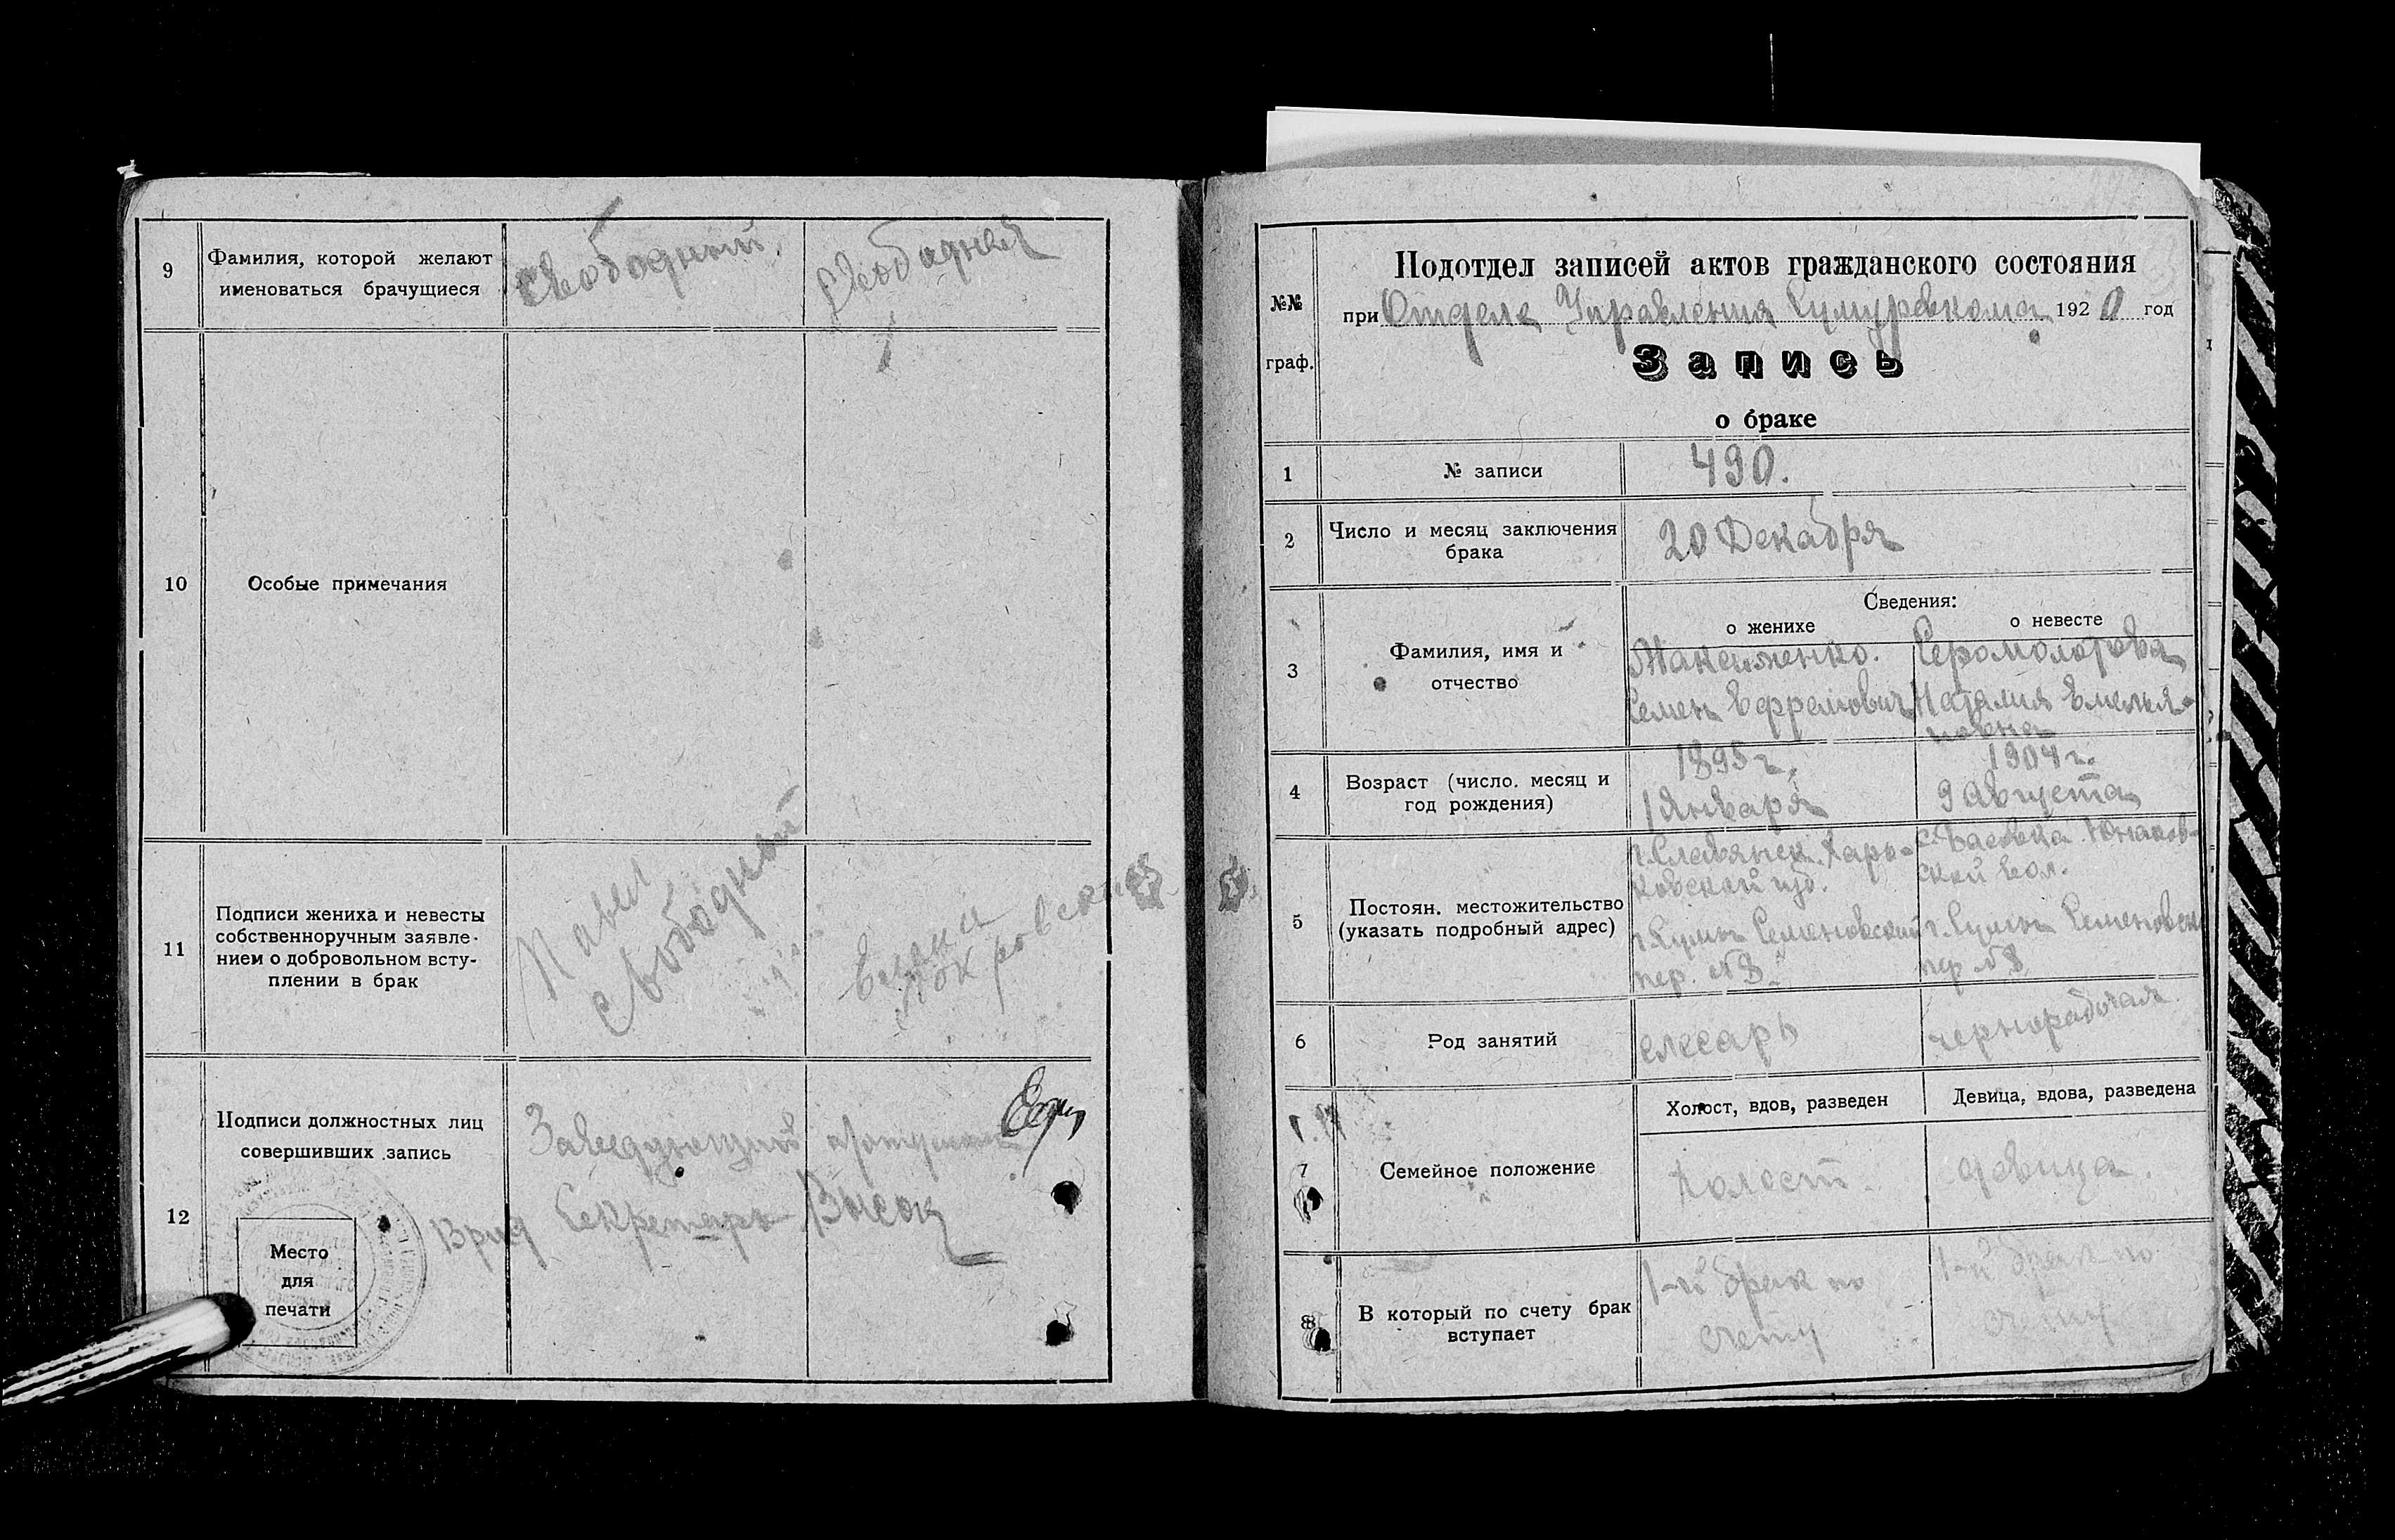 9
Фамилия, которой желают
именоваться брачущиеся
Свободный.
Свободная
10
Особые примечания
11
Подписи жениха и невесты
собственноручным заявле-
нием о добровольном всту-
плении в брак
Павел
Свободный
Покровская
12
Подписи должностных лиц
совершивших запись
Заведующий
Врид Секретарь Высоц
Место
для
печати
№№
граф.
Подотдел записей актов гражданского состояния
при Отделе Управления Сумуревкома 1920 год
Запись
о браке
1
№ записи
490.
2
Число и месяц заключения
брака
20 Декабря
Сведения:
о женихе
о невесте
3
Фамилия, имя и
отчество
Максименко.
Семен Ефремович
Сыромолотова
Наталия Емелья-
новна
4
Возраст (число. месяц и
год рождения)
1895 г.
1 Января
1904 г.
9 Августа
5
Постоян. местожительство
(указать подробный адрес)
г. Славянск. Харь-
ковской губ.
г. Сумы Семеновский
пер. №8
с. Басовка Юнаков-
ской вол.
г. Сумы Семеновск
пер №8
6
Род занятий
слесарь
чернорабочая
7
Семейное положение
Холост, вдов, разведен
Девица, вдова, разведена
холост.
девица.
8
В который по счету брак
вступает
1-й брак по
счету
1-й брак по
счету